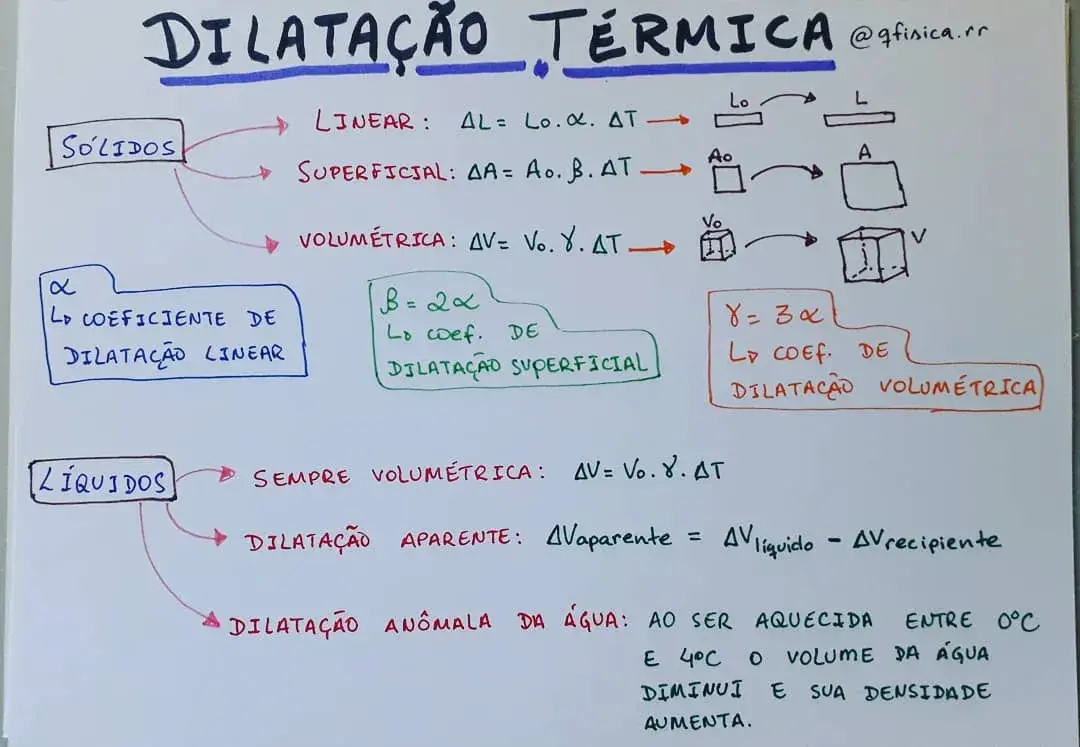 DILATAÇÃO TÉRMICA @qfisica.rr
SÓLIDOS
LINEAR: ΔL = Lo.α.ΔT
Lo L
SUPERFICIAL: ΔA = Ao.β.ΔT
Ao A
VOLUMÉTRICA: ΔV = Vo.γ.ΔT
Vo V
α
↳ COEFICIENTE DE
DILATAÇÃO LINEAR
β = 2α
↳ COEF. DE
DILATAÇÃO SUPERFICIAL
γ = 3α
↳ COEF. DE
DILATAÇÃO VOLUMÉTRICA
LÍQUIDOS
SEMPRE VOLUMÉTRICA: ΔV = Vo.γ.ΔT
DILATAÇÃO APARENTE: ΔVaparente = ΔVlíquido - ΔVrecipiente
DILATAÇÃO ANÔMALA DA ÁGUA: AO SER AQUECIDA ENTRE 0°C
E 4°C O VOLUME DA ÁGUA
DIMINUI E SUA DENSIDADE
AUMENTA.